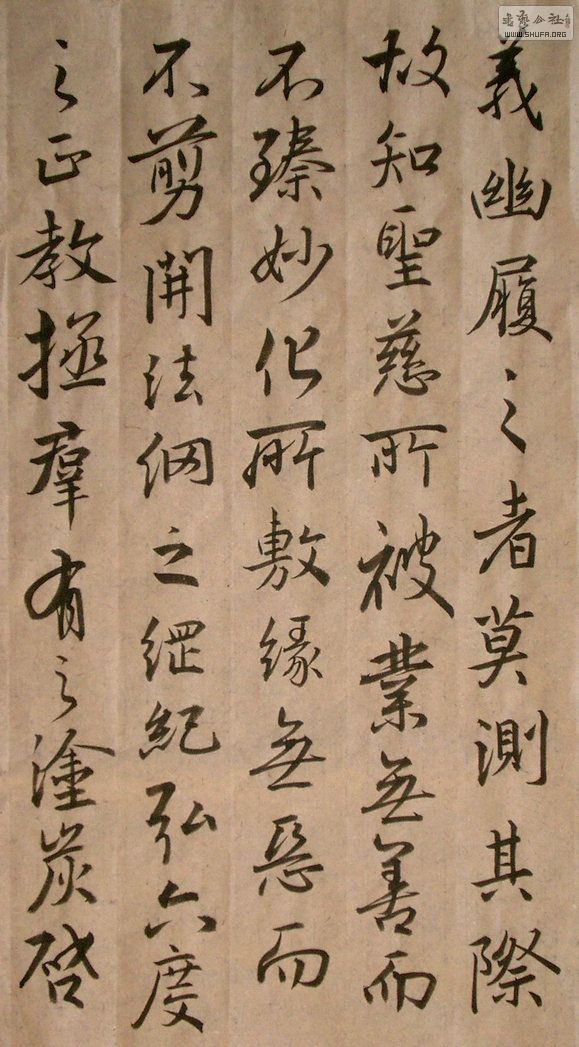 義幽履之者莫測其際
故知聖慈所被業無善而
不臻妙化所敷緣無惡而
不剪開法網之綱紀弘六度
之正教拯羣有之塗炭啓
書藝公社
WWW.SHUFA.ORG